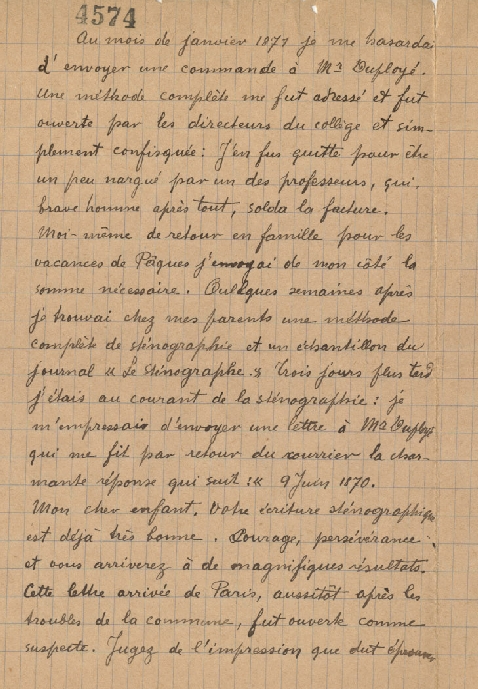 4574
Au mois de janvier 1871 je me hasardai
d'envoyer une commande à Mr Duployé.
Une méthode complète me fut adressé et fut
ouverte par les directeurs du collège et sim-
plement confisquée : J'en fus quitte pour être
un peu nargué par un des professeurs, qui,
brave homme après tout, solda la facture.
Moi-même de retour en famille pour les
vacances de Pâques j'envoyai de mon côté la
somme nécessaire. Quelques semaines après
je trouvai chez mes parents une méthode
complète de sténographie et un échantillon du
journal « Le sténographe » Trois jours plus tard
j'étais au courant de la sténographie : je
m'empressais d'envoyer une lettre à Mr Duployé
qui me fit par retour du courrier la char-
mante réponse qui suit : « 9 Juin 1870.
Mon cher enfant. Votre écriture sténographique
est déjà très bonne. Courage, persévérance
et vous arriverez à de magnifiques résultats.
Cette lettre arrivée de Paris, aussitôt après les
troubles de la commune, fut ouverte comme
suspecte. Jugez de l'impression que dut